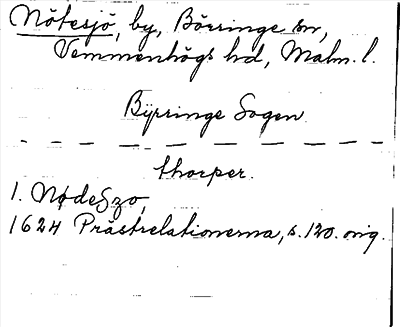 Nötesjö, by, Börringe sn,
Vemmenhögs hd, Malm. l.
Byrringe Sogen
thorper.
1. NødeSzo,
1624 Prästrelationerna, s. 120. orig.